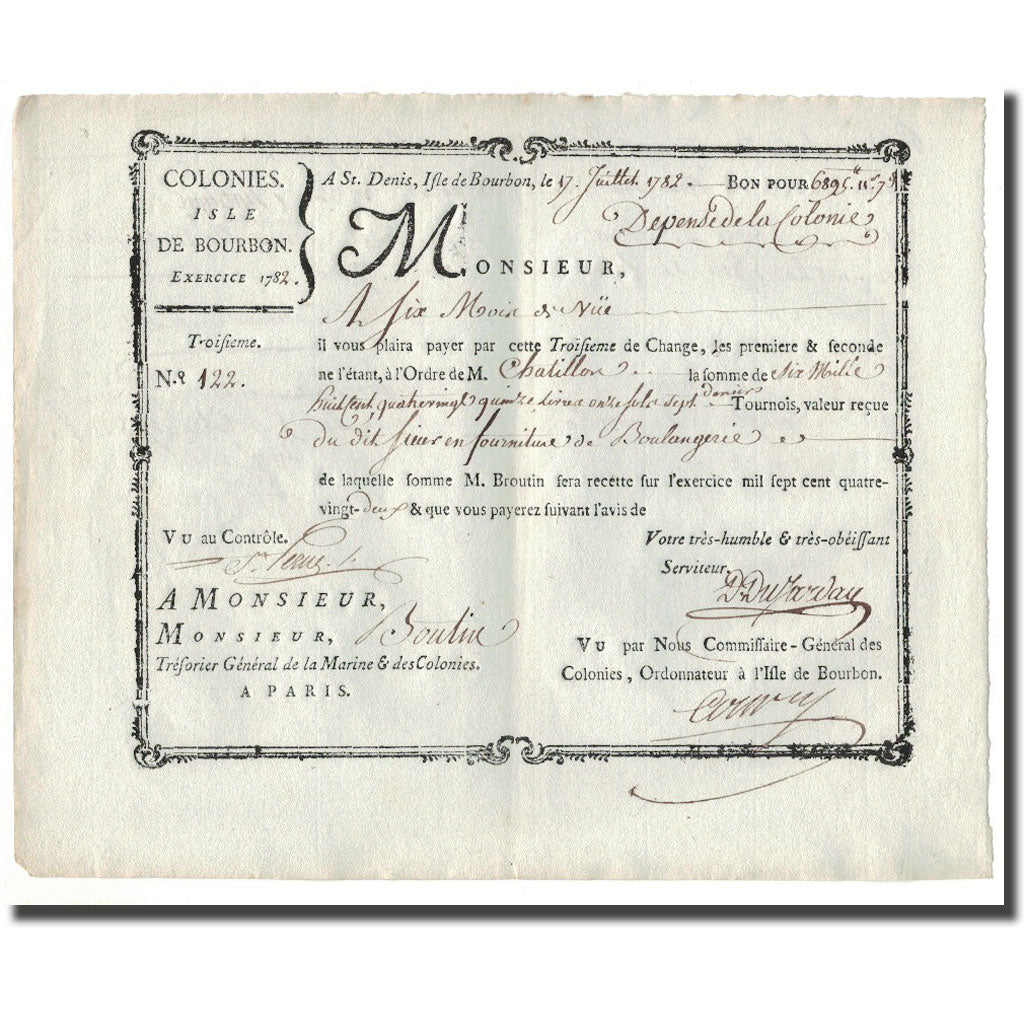 COLONIES.
ISLE
DE BOURBON.
EXERCICE 1782.
A St. Denis, Isle de Bourbon, le 17 Juillet 1782. BON POUR 6895ᵗᵗ 11ˢ 7ᵈ
Depense de la Colonie
MONSIEUR,
A Six Mois de Vüe
Troiſieme.
Nº 122.
il vous plaira payer par cette Troiſieme de Change, les premiere & seconde
ne l'étant, à l'Ordre de M. Chatillon la ſomme de Six Mille
huit Cent quatrevingt quinze livres onze sols sept deniers Tournois, valeur reçue
Du dit Sieur en fourniture de Boulangerie
de laquelle ſomme M. Broutin ſera recette ſur l'exercice mil ſept cent quatre-
vingt-deux & que vous payerez ſuivant l'avis de
VU au Contrôle.
Votre très-humble & très-obéiſſant
Serviteur.
A MONSIEUR,
MONSIEUR, Boutin
Tréſorier Général de la Marine & des Colonies.
A PARIS.
VU par Nous Commiſſaire-Général des
Colonies, Ordonnateur à l'Iſle de Bourbon.